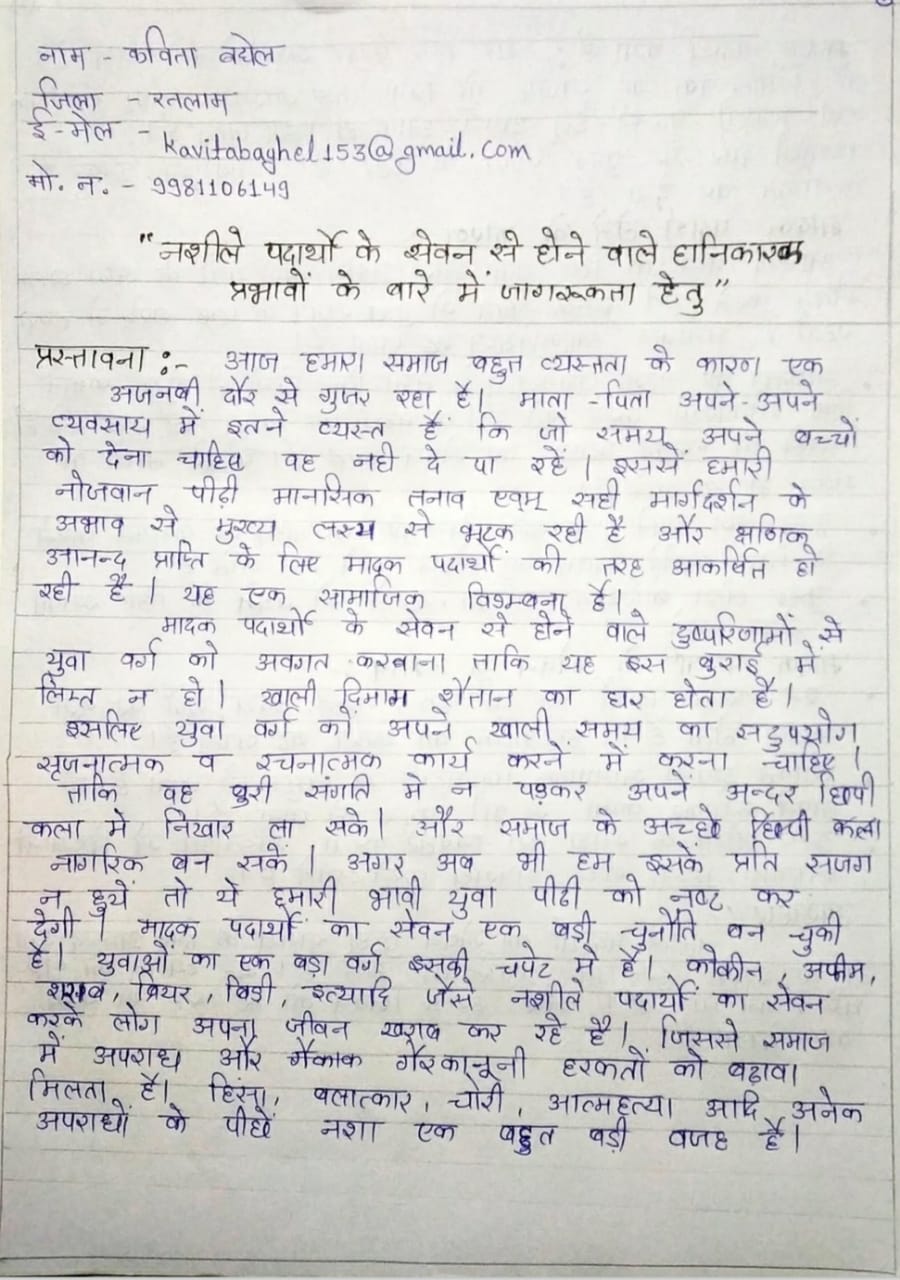 नाम - कविता बघेल
जिला - रतलाम
ई-मेल -
kavitabaghel153@gmail.com
मो. न. - 9981106149
"नशीले पदार्थो के सेवन से होने वाले हानिकारक
प्रभावों के बारे में जागरूकता हेतु"
प्रस्तावना :- आज हमारा समाज बहुत व्यस्तता के कारण एक
अजनबी दौर से गुजर रहा है। माता -पिता अपने-अपने
व्यवसाय में इतने व्यस्त हैं कि जो समय अपने बच्चों
को देना चाहिए वह नही दे पा रहे। इससे हमारी
नोजवान पीढ़ी मानसिक तनाव एवम् सही मार्गदर्शन के
अभाव से मुख्य लक्ष्य से भटक रही है और क्षणिक
आनन्द प्राप्ति के लिए मादक पदार्थो की तरह आकर्षित हो
रही है। यह एक सामाजिक विडम्बना है।
मादक पदार्थो के सेवन से होने वाले दुष्परिणामों से
युवा वर्ग को अवगत करवाना ताकि यह इस बुराई में
लिप्त न हो। खाली दिमाग शैतान का घर होता है।
इसलिए युवा वर्ग को अपने खाली समय का सदुपयोग
सृजनात्मक व रचनात्मक कार्य करने में करना चाहिए।
ताकि वह बुरी संगति मे न पड़कर अपने अन्दर छिपी
कला मे निखार ला सके। और समाज के अच्छे छिपी कला
नागरिक बन सके। अगर अब भी हम इसके प्रति सजग
न हुयें तो ये हमारी भावी युवा पीढी को नष्ट कर
देगी। मादक पदार्थों का सेवन एक बड़ी चुनौति बन चुकी
है। युवाओं का एक बड़ा वर्ग इसकी चपेट मे है। कोकीन, अफीम,
शराब, बियर, बिडी, इत्यादि जैसे नशीले पदार्थों का सेवन
करके लोग अपना जीवन खराब कर रहे है। जिससे समाज
में अपराध और गैरकानूनी हरकतों को बढ़ावा
मिलता है। हिंसा, बलात्कार, चोरी, आत्महत्या आदि अनेक
अपराधों के पीछे नशा एक बहुत बड़ी वजह है।